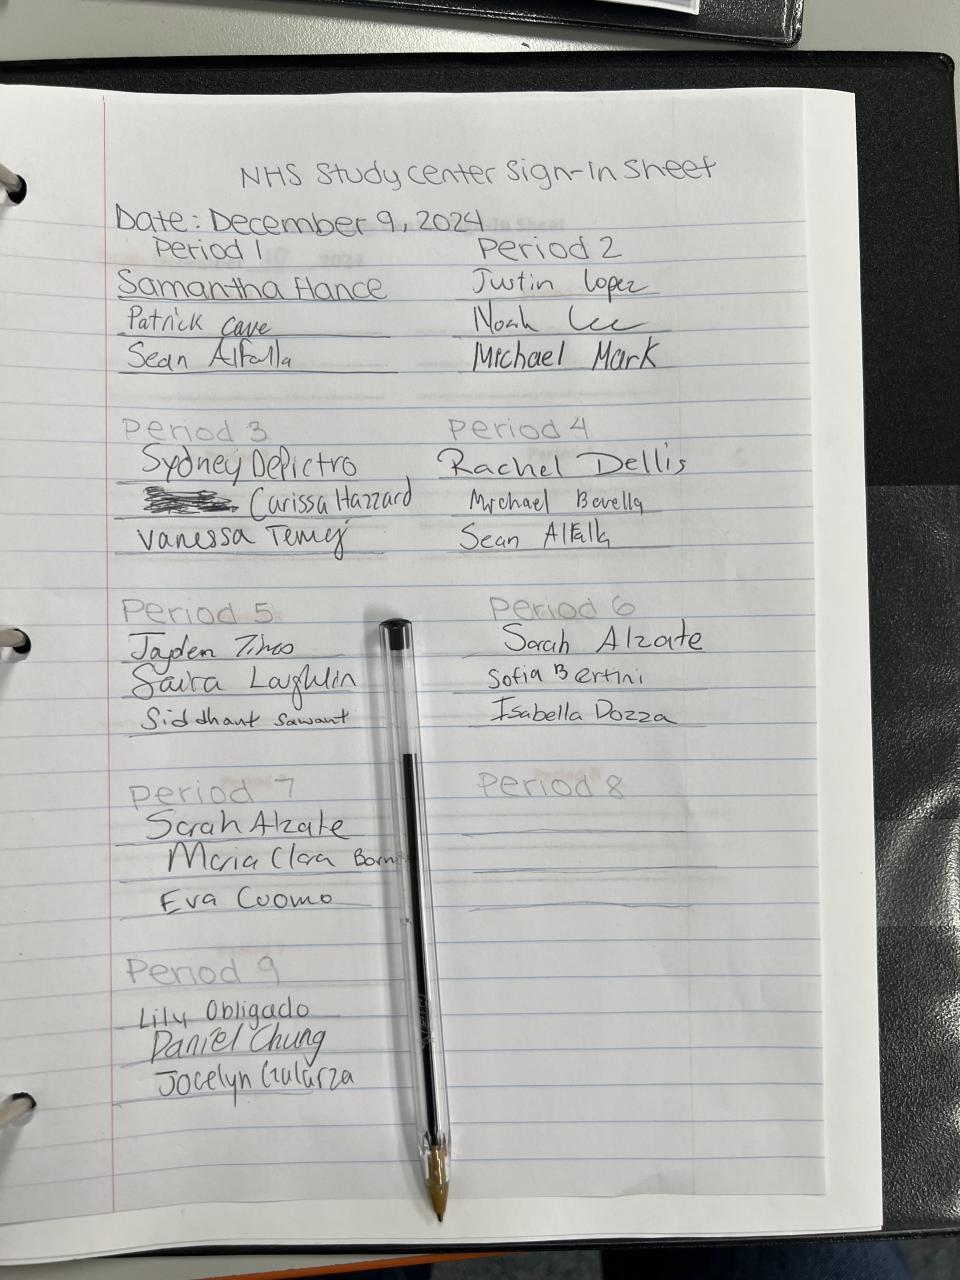 NHS Study center Sign-In Sheet
Date: December 9, 2024
Period 1
Samantha Hance
Patrick Cave
Sean Alfalla
Period 2
Justin Lopez
Noah Lee
Michael Mark
Period 3
Sydney DePietro
Carissa Hazzard
Vanessa
Period 4
Rachel Dellis
Michael Bevella
Sean Alfalla
Period 5
Jayden
Saira Laughlin
Siddhant Sawant
Period 6
Sarah Alzate
Sofia Bertini
Isabella Dozza
Period 7
Sarah Alzate
Maria Clara
Eva Cuomo
Period 8
Period 9
Lily Obligado
Daniel Chung
Jocelyn Galarza